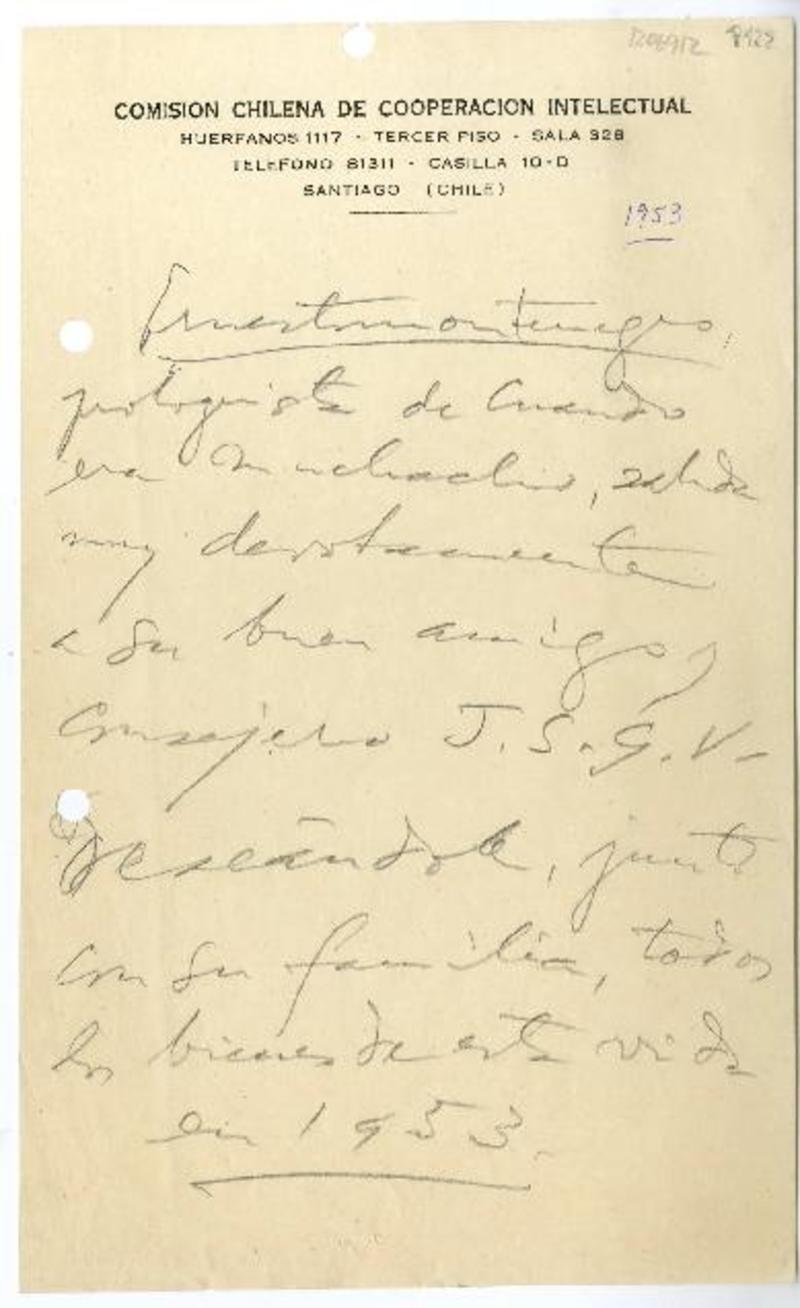 1206912 8428
COMISION CHILENA DE COOPERACION INTELECTUAL
HUERFANOS 1117 - TERCER PISO - SALA 328
TELEFONO 81311 - CASILLA 10-D
SANTIAGO (CHILE)
1953
Ernesto Montenegro,
prologuista de Cuando
era muchacho, saluda
muy devotamente
a su buen amigo y
Consejero J.S.G.V-
deseándole, junto
con su familia, todos
los bienes de esta vida
en 1953.